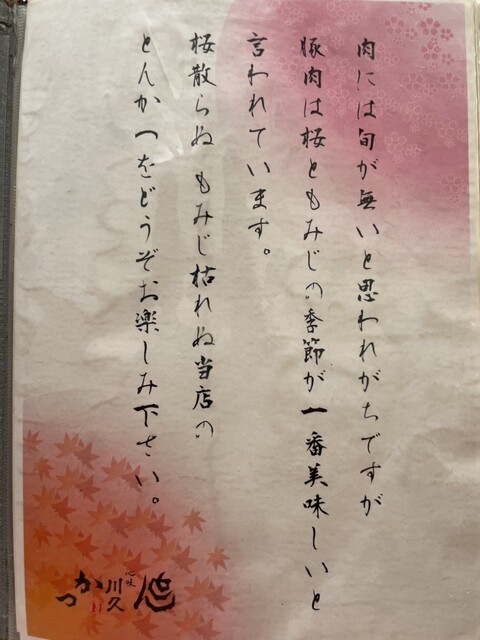 肉には旬が無いと思われがちですが
豚肉は桜ともみじの季節が一番美味しいと
言われています。
桜散らぬ もみじ枯れぬ当店の
とんかつをどうぞお楽しみ下さい。
川久
かつ